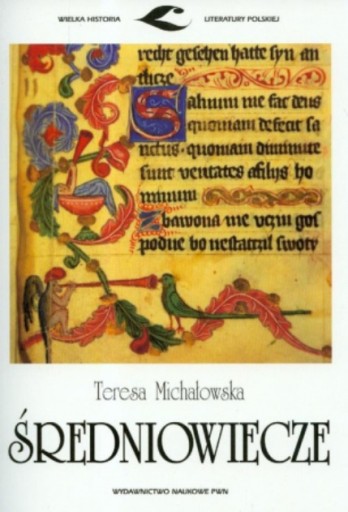 WIELKA HISTORIA LITERATURY POLSKIEJ
recht gesehen hatte syn an
tlicze
Saluum me fac deus
quoniam defecit sa
nctus · quoniam diminute
sunt veritates afilijs ho
minum
Zbawona me uczyn gos
podne bo swoty
Teresa Michałowska
ŚREDNIOWIECZE
WYDAWNICTWO NAUKOWE PWN